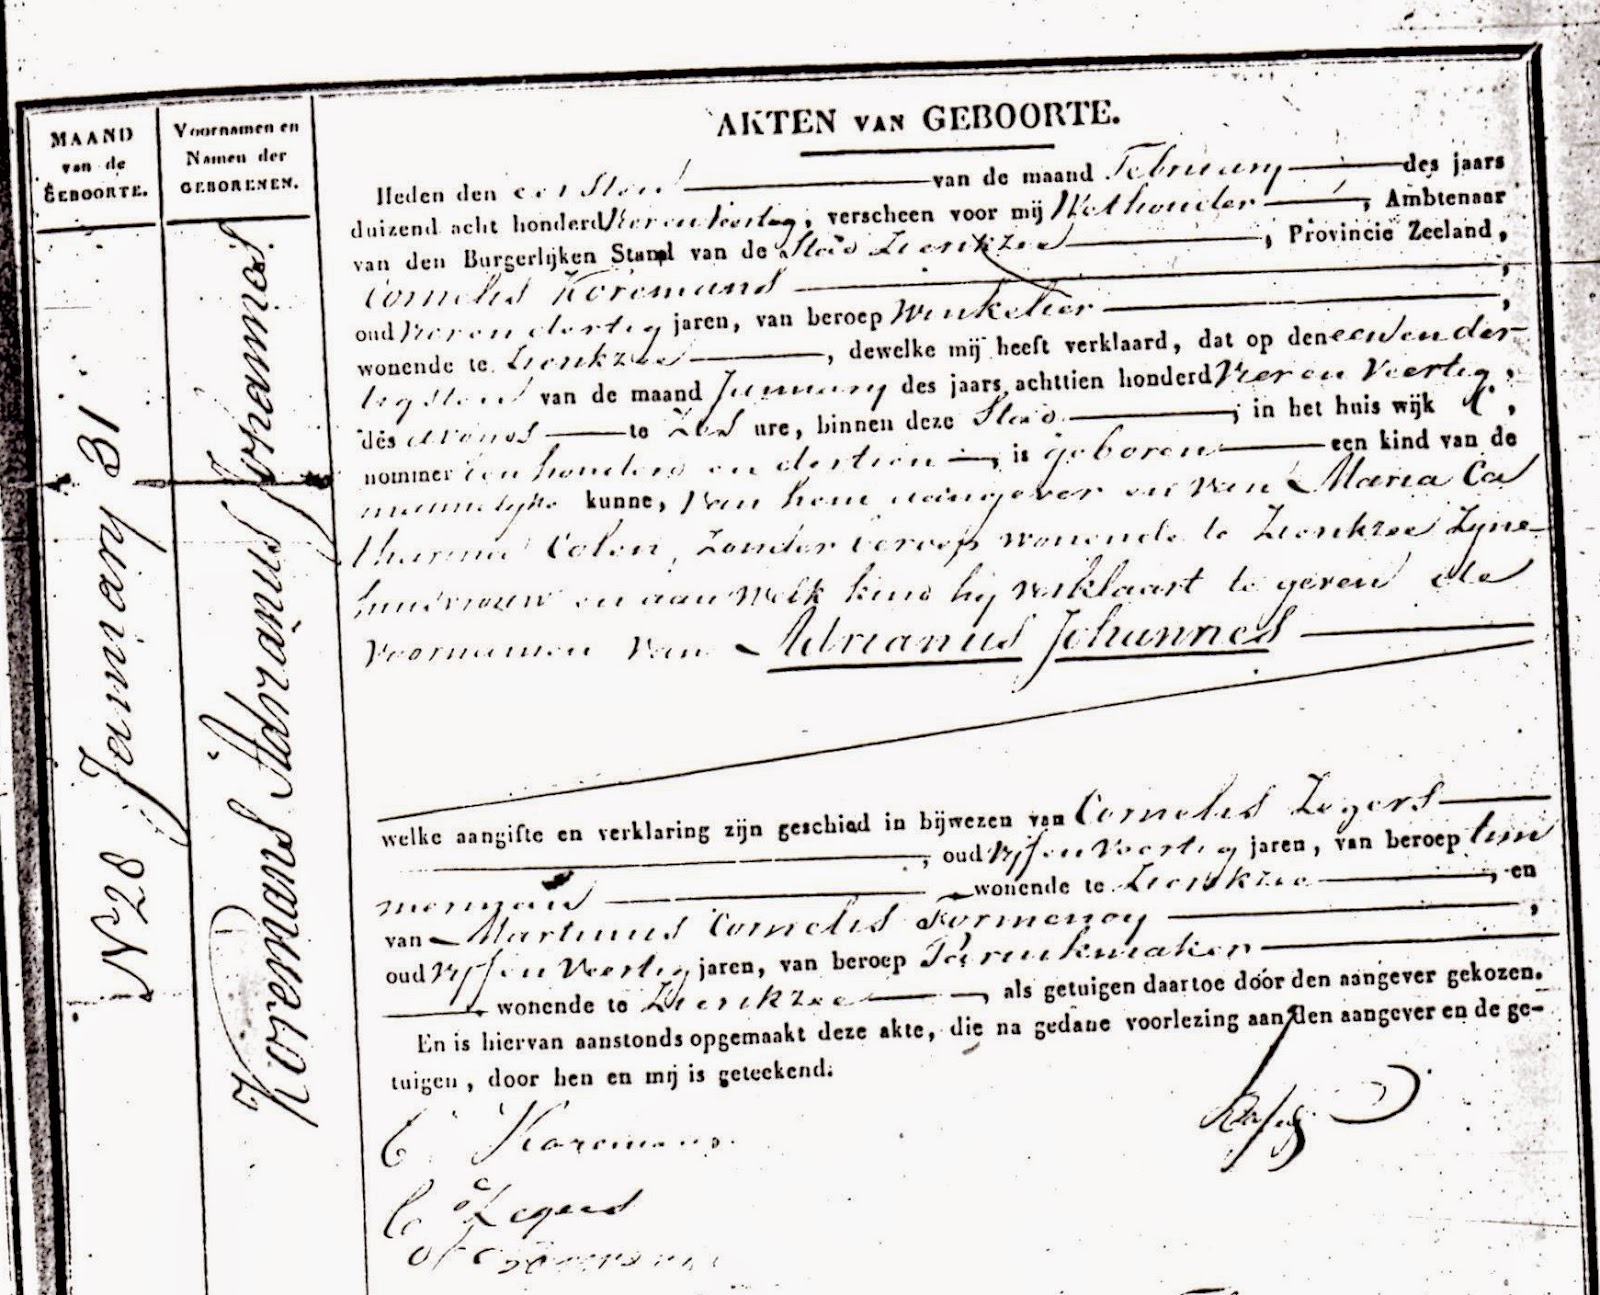 MAAND
van de
GEBOORTE.
Voornamen en
Namen der
GEBORENEN.
N 28 January 31
Koremans Adrianus Johannes
AKTEN VAN GEBOORTE.
Heden den eersten van de maand February des jaars
duizend acht honderd Vier en Veertig, verscheen voor mij Wethouder, Ambtenaar
van den Burgerlijken Stand van de Stad Zierikzee, Provincie Zeeland,
Cornelis Koremans,
oud Vier en dertig jaren, van beroep Winkelier,
wonende te Zierikzee, dewelke mij heeft verklaard, dat op den een en der-
tigsten van de maand January des jaars achttien honderd Vier en Veertig,
des avonds te Zes ure, binnen deze Stad, in het huis wijk,
nommer een honderd en dertien, is geboren een kind van de
mannelijke kunne, van hem aangever en van Maria Ca
tharina Colen, zonder beroep wonende te Zierikzee Zyne
huisvrouw en aan welk kind hij verklaart te geven de
voornamen van Adrianus Johannes
welke aangifte en verklaring zijn geschied in bijwezen van Cornelis Zegers
, oud Vijf en Veertig jaren, van beroep tim
merman wonende te Zierikzee, en
van Martinus Cornelis,
oud Vijf en Veertig jaren, van beroep Paruikmaker
wonende te Zierikzee, als getuigen daartoe door den aangever gekozen.
En is hiervan aanstonds opgemaakt deze akte, die na gedane voorlezing aan den aangever en de ge-
tuigen, door hen en mij is geteekend.
C Koremans.
C Zegers